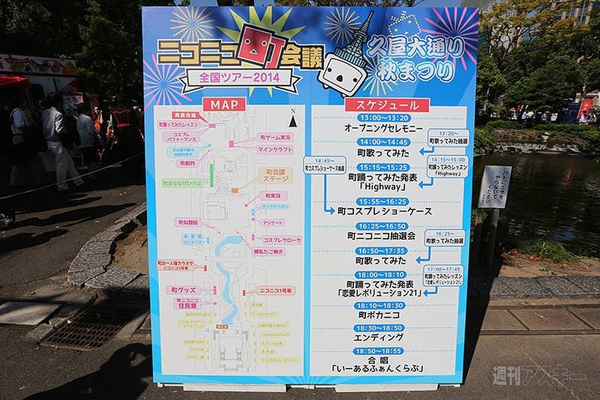 ニコニコ町会議
全国ツアー2014
久屋大通り
秋まつり
MAP
発表会場
町踊ってみたレッスン
コスプレ
パフォーマンス
町ゲーム実況
マインクラフト
町会議
ステージ
町実況
アンケート
コスプレクローク
町似顔絵
ニコニコ1号車
町グッズ
町ニコニコ
住民票
スケジュール
13:00〜13:20
オープニングセレモニー
13:20〜
町歌ってみた抽選
14:00〜14:45
町歌ってみた
14:15〜15:00
町踊ってみたレッスン
「Highway」
14:45〜
町コスプレショーケース抽選
15:15〜15:25
町踊ってみた発表
「Highway」
15:55〜16:25
町コスプレショーケース
16:25〜16:50
町ニコニコ抽選会
16:25〜
町歌ってみた抽選
16:50〜17:35
町歌ってみた
17:00〜17:45
町踊ってみたレッスン
「恋愛レボリューション21」
18:00〜18:10
町踊ってみた発表
「恋愛レボリューション21」
18:10〜18:30
町ボカニコ
18:30〜18:50
エンディング
18:50〜18:55
合唱
「いーあるふぁんくらぶ」
週刊アスキー